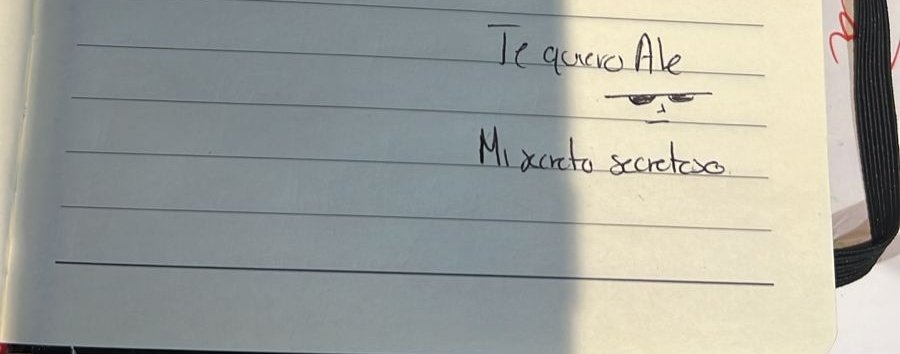 Te quiero Ale
Mi secreto secretoso.